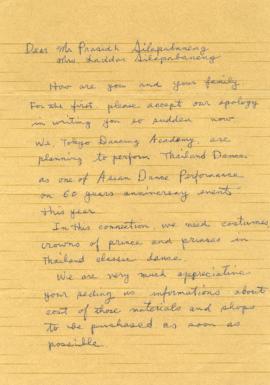 Dear Mr Prasidh Silapabanleng
Mrs. Laddar Silapabanleng
How are you and your family.
For the first, please accept our apology
in writing you so sudden now.
We, Tokyo Dancing Academy, are
planning to perform Thailand Dance
as one of Asian Dance Performance
on 60 years anniversary event
this year.
In this connection, we need costumes,
crowns of prince and princess in
Thailand classic dance.
We are very much appreciative
your sending us informations about
cost of those materials and shops
to be purchased as soon as
possible.